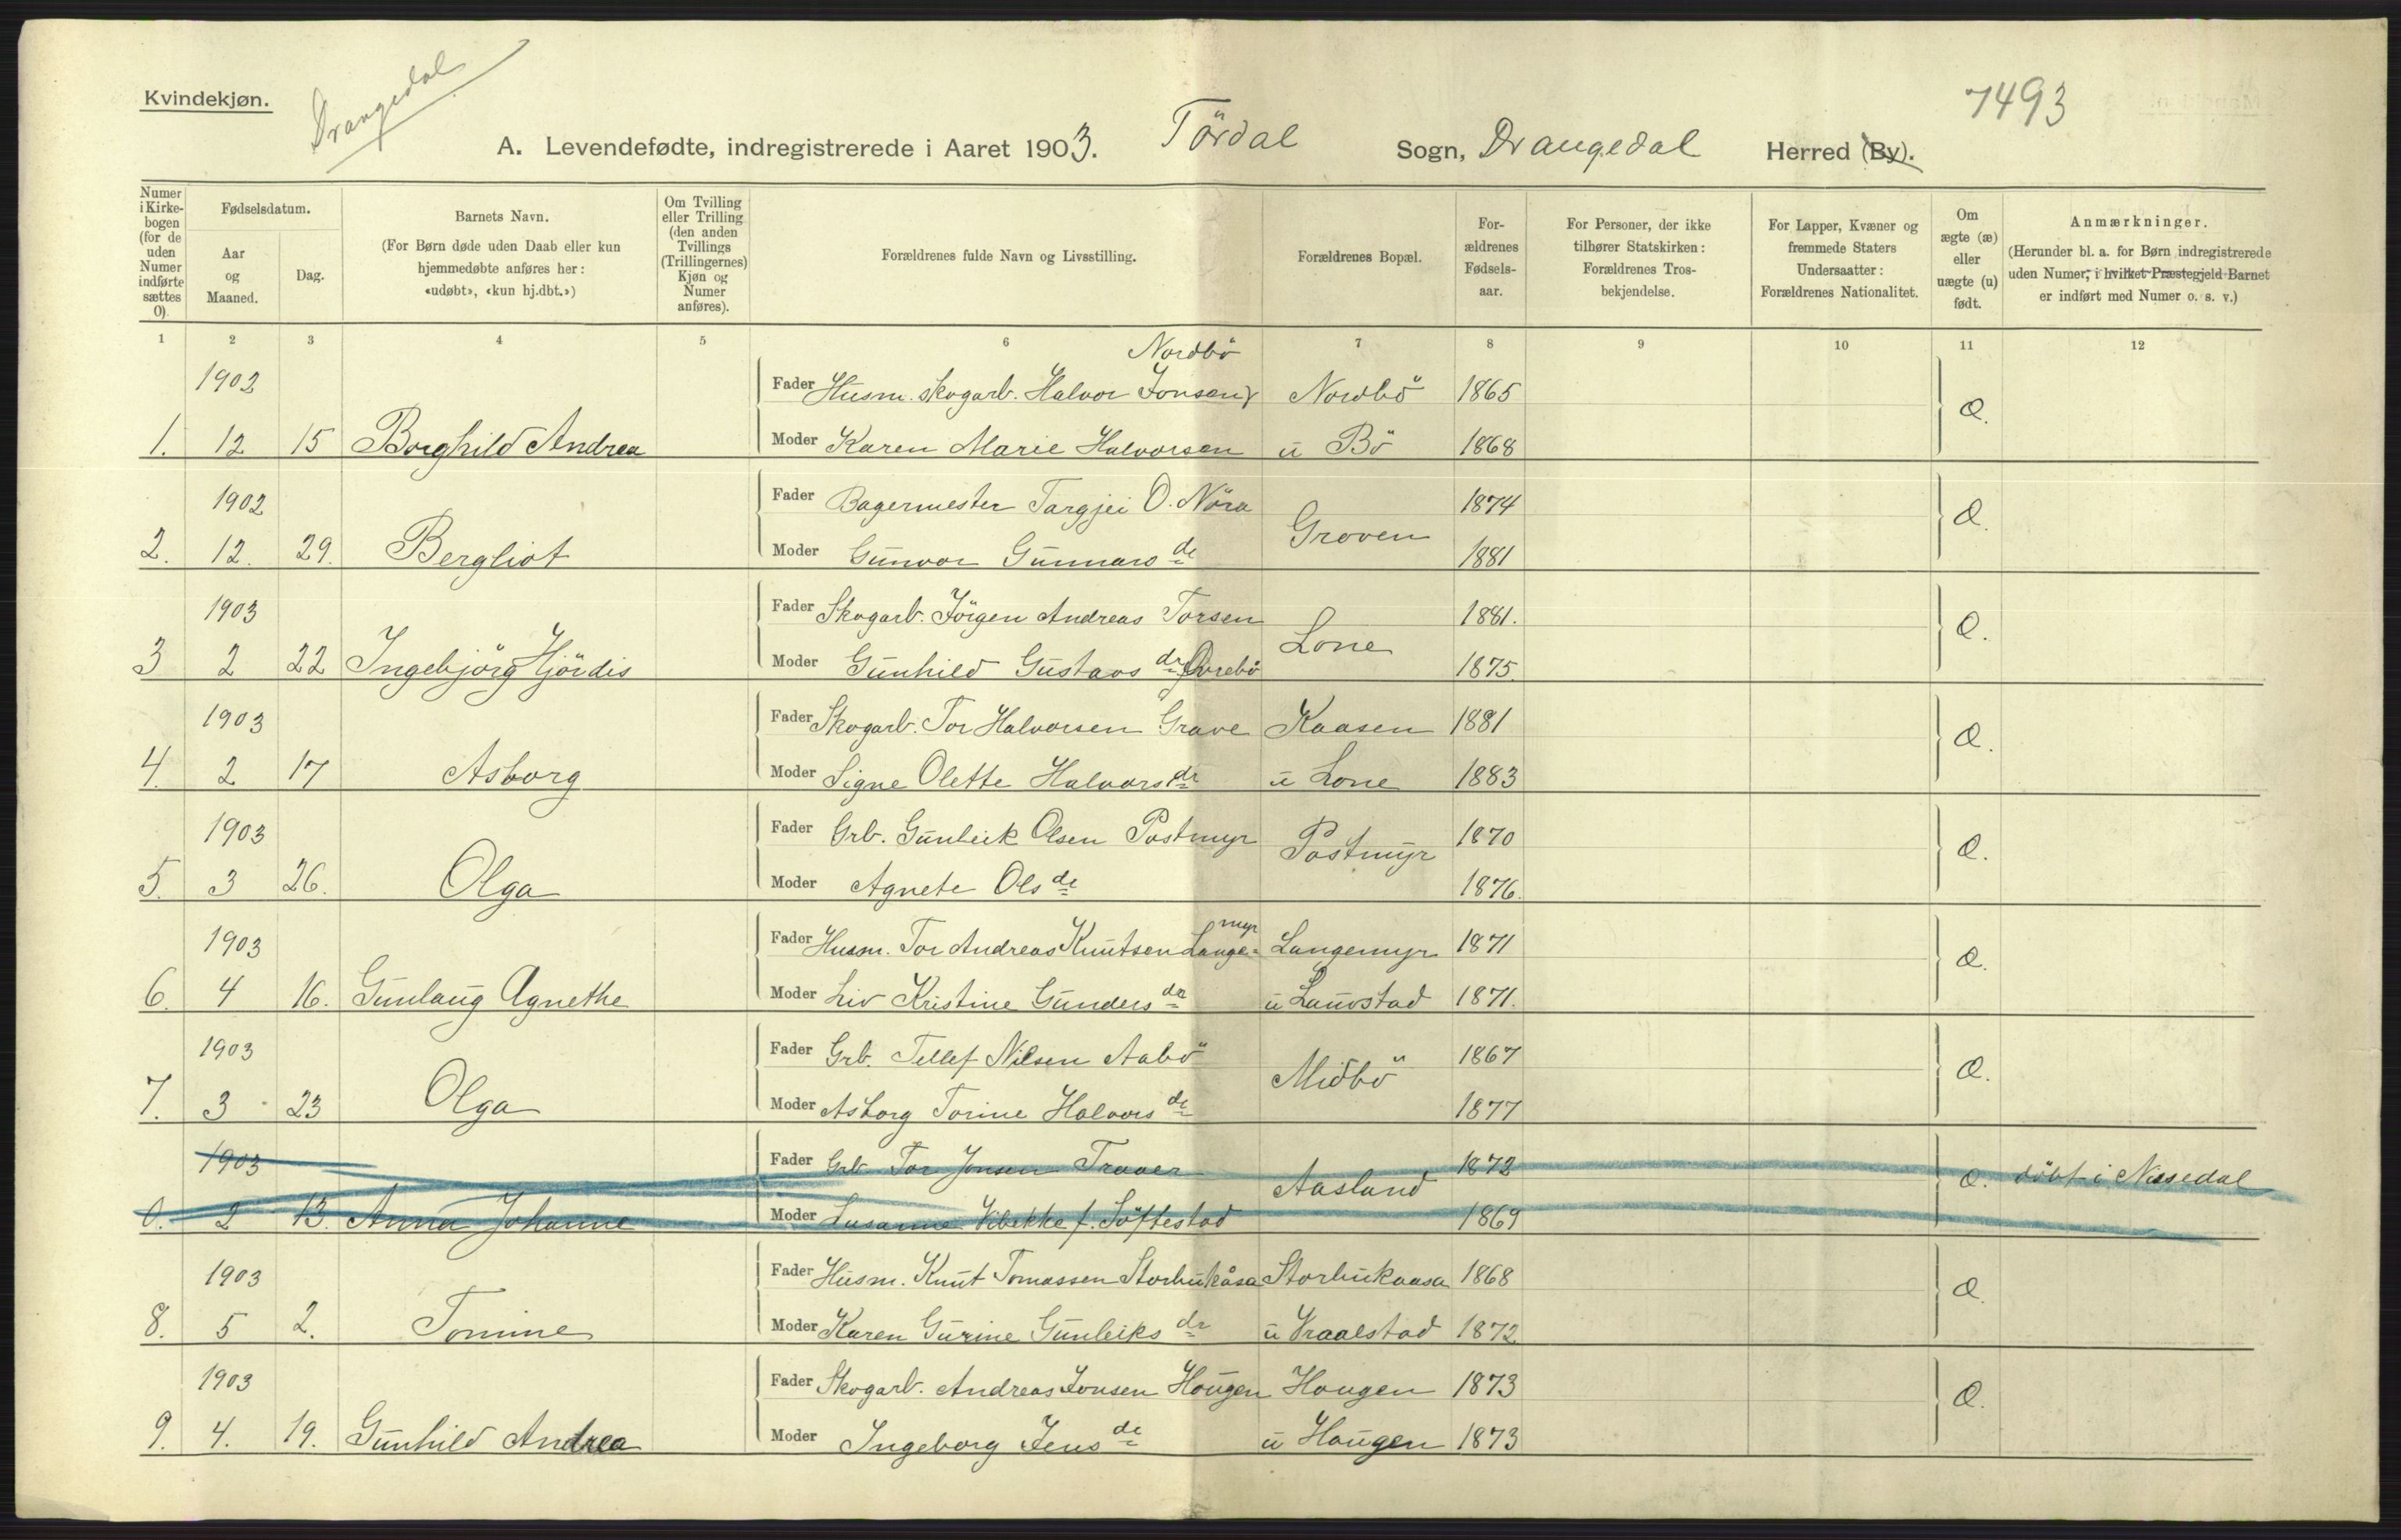 Kvindekjøn.
Drangedal
7493
A. Levendefødte, indregistrerede i Aaret 1903. Tördal Sogn, Drangedal Herred (By).
Numer i Kirkebogen (for de uden Numer indførte sættes 0).
Fødselsdatum.
Aar og Maaned.
Dag.
Barnets Navn.
(For Børn døde uden Daab eller kun hjemmedøbte anføres her: «udøbt», «kun hj.dbt.»)
Om Tvilling eller Trilling (den anden Tvillings (Trillingernes) Kjøn og Numer anføres).
Forældrenes fulde Navn og Livsstilling.
Forældrenes Bopæl.
Forældrenes Fødselsaar.
For Personer, der ikke tilhører Statskirken: Forældrenes Trosbekjendelse.
For Lapper, Kvæner og fremmede Staters Undersaatter: Forældrenes Nationalitet.
Om ægte (æ) eller uægte (u) født.
Anmærkninger.
(Herunder bl. a. for Børn indregistrerede uden Numer, i hvilket Præstegjeld Barnet er indført med Numer o. s. v.)
1 2 3 4 5 6 7 8 9 10 11 12
Nordbö
1902 Fader Husm. skogarb. Halvor Jonsen Nordbö 1865
1. 12 15 Borghild Andrea Moder Karen Marie Halvorsen u Bö 1868 Æ.
1902 Fader Bagermester Targjei O. Nöra Groven 1874
2. 12. 29. Bergliot Moder Gunvor Gunnars dr 1881 Æ.
1903 Fader Skogarb. Jörgen Andreas Torsen Lone 1881.
3 2 22 Ingebjörg Hjördis Moder Gunhild Gustavs dr Övrebö 1875. Æ.
1903 Fader Skogarb. Tor Halvorsen Grave Kaasen 1881
4. 2 17 Asborg Moder Signe Olette Halvors dr u Lone 1883 Æ.
1903 Fader Grb. Gunleik Olsen Postmyr Postmyr 1870
5. 3 26. Olga Moder Agnete Ols dr 1876. Æ.
1903 Fader Husm. Tor Andreas Knutsen Langemyr Langemyr 1871
6. 4 16. Gunlaug Agnethe Moder Liv Kristine Gunders dr u Lauvstad 1871. Æ.
1903 Fader Grb. Tellef Nilsen Aabö Midbö 1867
7. 3 23 Olga Moder Asborg Torine Halvors dr 1877 Æ.
1903 Fader Grb. Tor Jonsen Traaer Aasland 1872
0. 2 13. Anna Johanne Moder Susanne Vibekke f. Töftestad 1869 Æ. döbt i Nissedal
1903 Fader Husm. Knut Tomassen Storbukåsa Storbukaasa 1868
8. 5 2. Tomine Moder Karen Gurine Gunleiks dr u Vraalstad 1872 Æ.
1903 Fader Skogarb. Andreas Jonsen Haugen Haugen 1873
9. 4. 19. Gunhild Andrea Moder Ingeborg Jens dr u Haugen 1873 Æ.